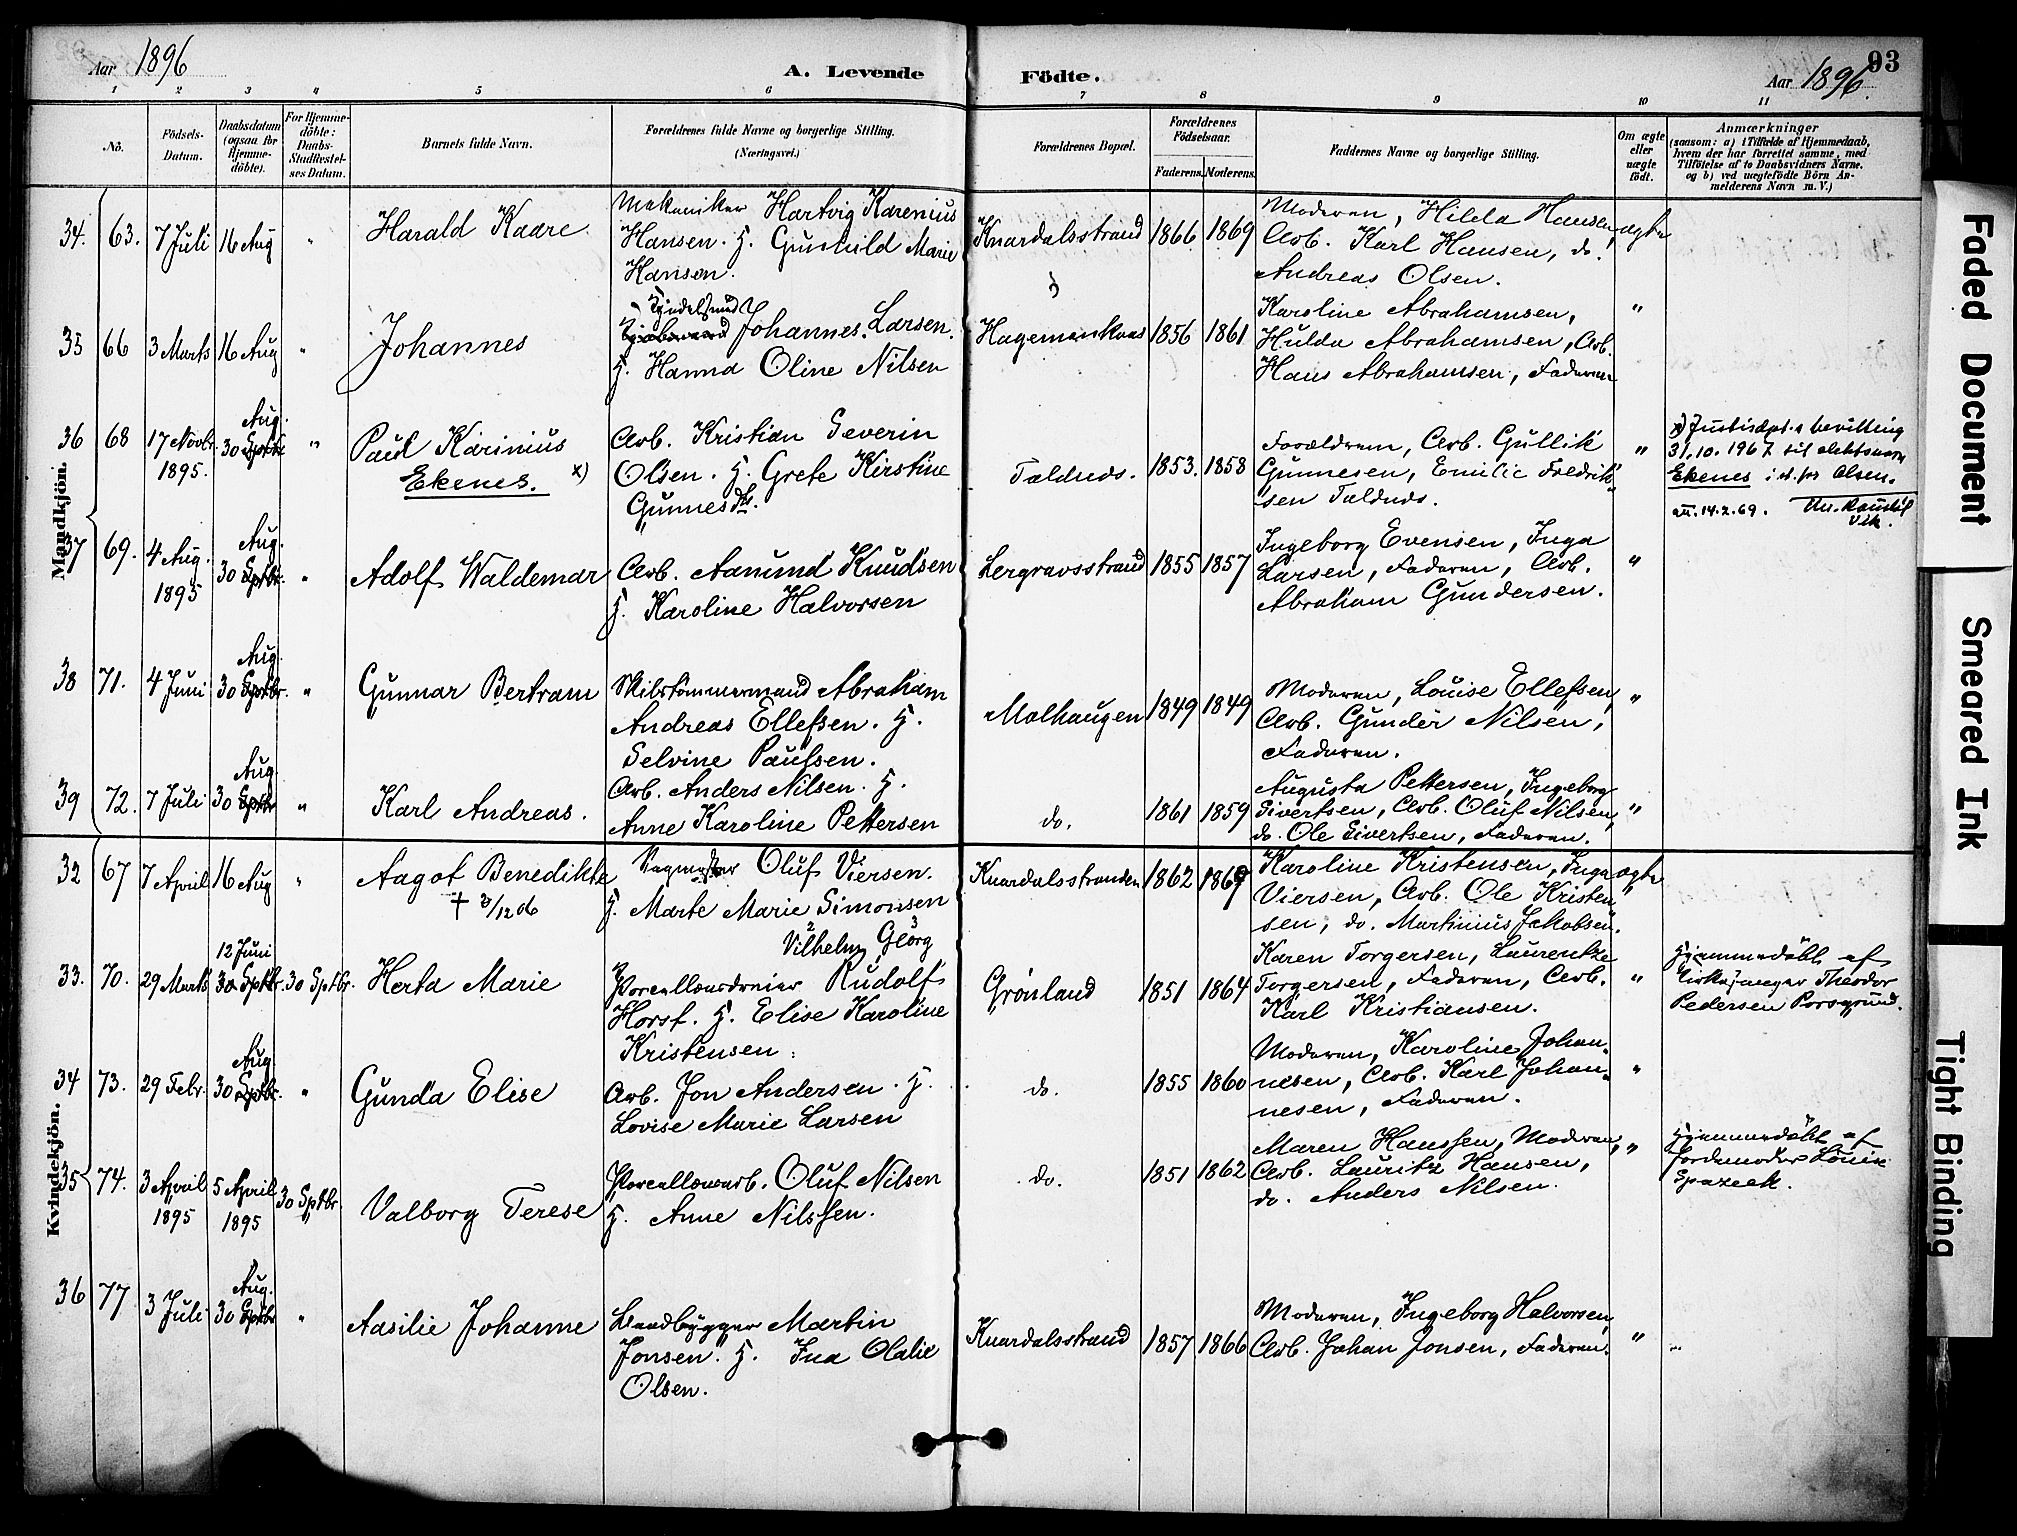 Aar 1896
A. Levende Födte.
93
Aar 1896.
1 2 3 4 5 6 7 8 9 10 11
No.
Födsels-Datum.
Daabsdatum (ogsaa for Hjemme-döbte).
For Hjemme-döbte: Daabs-Stadfæstel-ses Datum.
Barnets fulde Navn.
Forældrenes fulde Navne og borgerlige Stilling.
(Næringsvei.)
Forældrenes Bopæl.
Forældrenes Födselsaar.
Faderens. Moderens.
Faddernes Navne og borgerlige Stilling.
Om ægte eller uægte födt.
Anmærkninger
(saasom: a) i Tilfælde af Hjemmedaab,
hvem der har forrettet samme, med
Tilföielse af to Daabsvidners Navne,
og b) ved uægtefödte Börn An-
melderens Navn m. V.)
Mandkjön.
34. 63. 7 Juli 16 Aug " Harald Kaare
Mekaniker Hartvig Karenius
Hansen. H. Gunhild Marie
Hansen.
Knardalsstrand 1866 1869
Moderen, Hilda Hansen,
Arb. Karl Hansen, do.
Andreas Olsen.
ægte
35 66 3 Marts 16 Aug " Johannes
Johannes Larsen.
H. Hanna Oline Nilsen
Hagemenkaas 1856 1861
Karoline Abrahamsen,
Hulda Abrahamsen, Arb.
Hans Abrahamsen, Faderen
"
36 68 17 Novbr. 1895. Aug. 30 Sptbr. "
Paul Karinius
Ekenes. x)
Arb. Kristian Severin
Olsen. H. Grete Kirstine
Gunnesdtr.
Taldnds. 1853. 1858
Forældrene, Arb. Gullik
Gunnesen, Emilie Fredrik-
sen Taldnds.
"
x) Justisdept.s bevilling
31.10.1967 til slektsnavn
Ekenes i st. for Olsen.
14.2.69.
37 69. 4 Aug. 1895 Aug. 30 Sptbr. " Adolf Waldemar
Arb. Aamund Knudsen
H. Karoline Halvorsen
Lergravsstrand 1855 1857
Ingeborg Evensen, Inga
Larsen, Faderen, Arb.
Abraham Gundersen.
"
38 71. 4 Juni Aug. 30 Sptbr. " Gunnar Bertram
Skibstømmermand Abraham
Andreas Ellefsen. H.
Selvine Paulsen.
Molhaugen 1849 1849
Moderen, Louise Ellefsen,
Arb. Gunder Nilsen,
Faderen.
"
39 72. 7 Juli Aug. 30 Sptbr " Karl Andreas.
Arb. Anders Nilsen. H.
Anne Karoline Pettersen
do. 1861 1859
Augusta Pettersen, Ingeborg
Sivertsen, Arb. Oluf Nilsen,
do. Ole Sivertsen, Faderen.
"
Kvindekjön.
32 67 7 April 16 Aug " Aagot Benedikte
† 3/12 06
Vagmester Oluf Viersen.
H. Marte Marie Simonsen
Knardalsstranden 1862 1869
Karoline Kristensen, Inga
Viersen, Arb. Ole Kristen-
sen, do. Martinius Jakobsen.
ægte
33. 70. 29 Marts 12 Juni 30 Sptbr. 30 Sptbr. Herta Marie
Vilhelm Georg
Porcellænsdreier Rudolf
Horst. H. Elise Karoline
Kristensen.
Grønland 1851 1864
Karen Torgersen, Laurentze
Torgersen, Faderen, Arb.
Karl Kristiansen.
"
Hjemmedøbt af
Kirkesanger Theodor
Pedersen Porsgrund.
34 73. 29 Febr. Aug. 30 Sptbr. " Gunda Elise
Arb. Jon Andersen. H.
Lovise Marie Larsen
do. 1855 1860
Moderen, Karoline Johan-
nesen, Arb. Karl Johan-
nesen, Faderen.
"
35 74. 3 April 1895 5 April 1895 30 Sptbr. Valborg Terese
Porcellænsarb. Oluf Nilsen
H. Anne Nilssen.
do. 1851 1862
Maren Hanssen, Moderen,
Arb. Lauritz Hansen,
do. Anders Nilsen.
"
Hjemmedøbt af
Jordemoder Louise
36 77 3 Juli Aug. 30 Sptbr " Aasilie Johanne
Martin
Jonsen. H. Ina Olalie
Olsen.
Knardalsstrand 1857 1866
Moderen, Ingeborg Halvorsen,
Arb. Johan Jonsen, Faderen.
"
Faded Document
Smeared Ink
Tight Binding